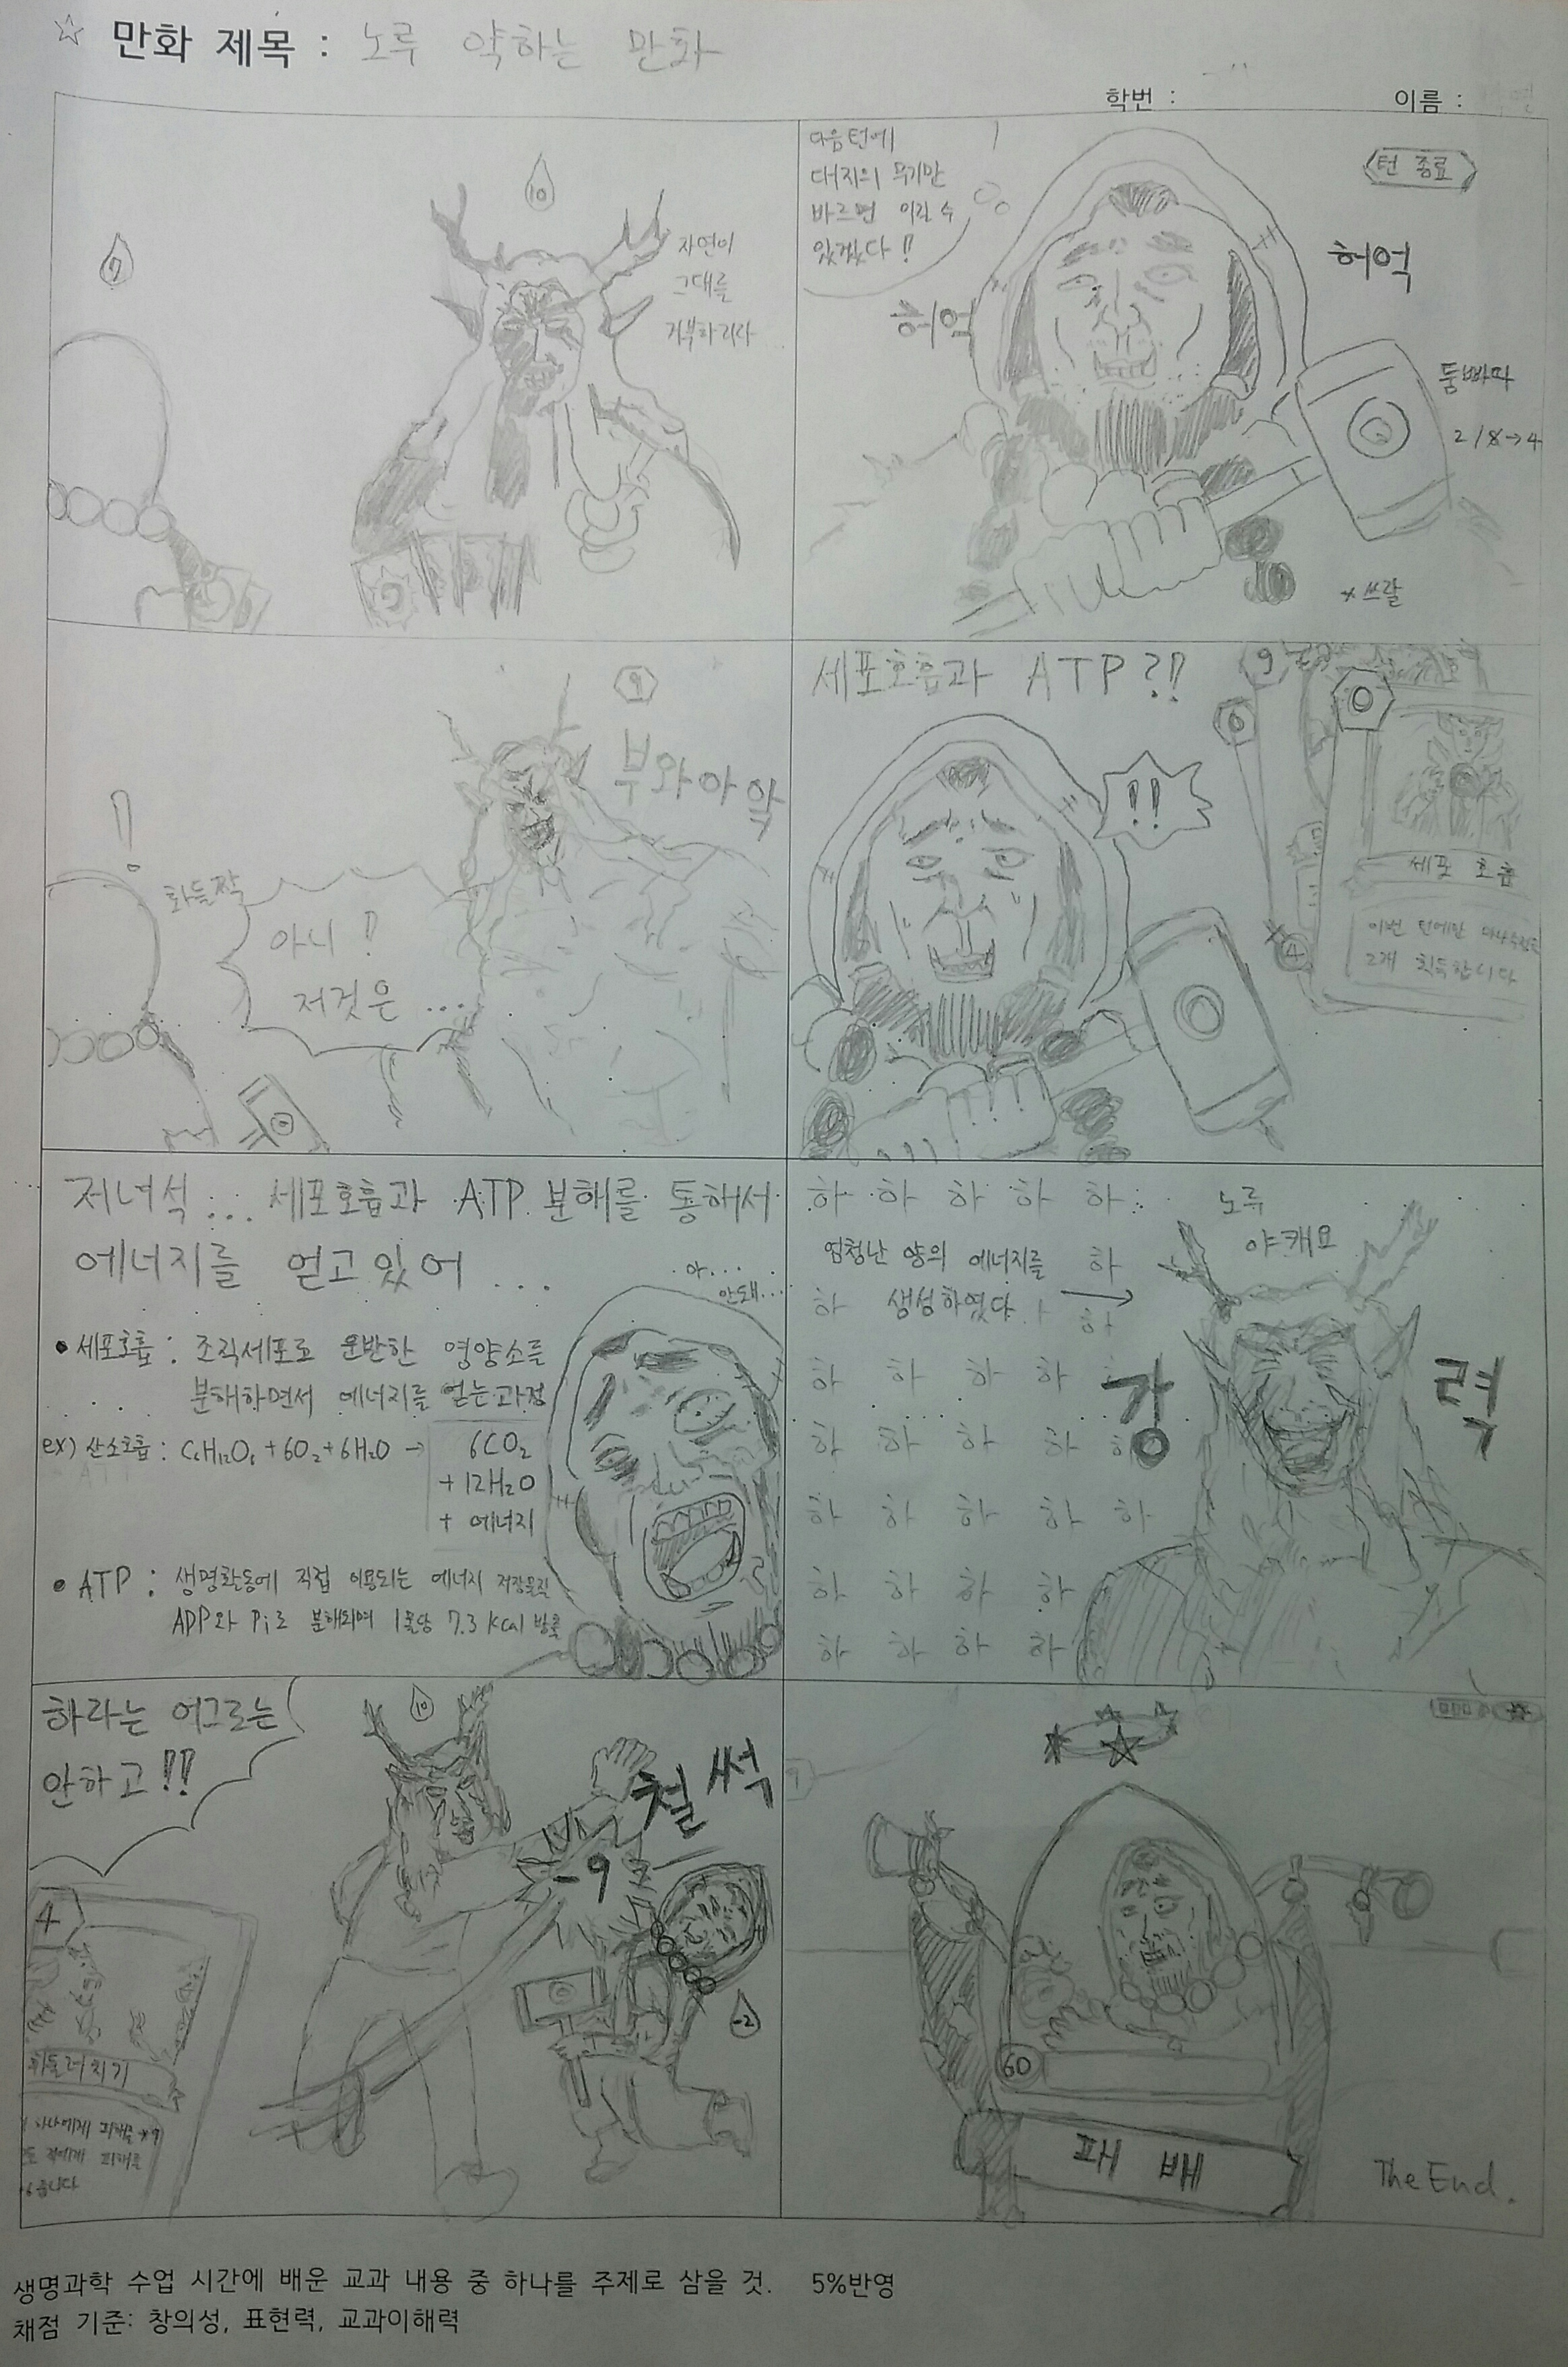 ☆ 만화 제목 : 노루 약하는 만화
학번 :
이름 :
10
7
자연이
그대를
거부하리라
다음턴에
대지의 무기만
바르면 이길 수
있겠다!!
턴 종료
허억
허억
둠빠따
2/8→4
*쓰랄
9
부와아악
!!
화들짝
아니!!
저것은 ...
세포호흡과 ATP?!!
!!
9
6
0
4
세포 호흡
이번 턴에만 마나수정을
2개 획득합니다
저녀석... 세포호흡과 ATP 분해를 통해서
에너지를 얻고있어 ...
아...
안돼...
• 세포호흡 : 조직세포로 운반한 영양소를
분해하면서 에너지를 얻는과정
ex) 산소호흡 : C6H12O6 + 6O2 + 6H2O → 6CO2
+ 12H2O
+ 에너지
• ATP : 생명활동에 직접 이용되는 에너지 저장물질
ADP와 Pi로 분해되며 1몰당 7.3 kcal 방출
하 하 하 하 하
노루
야캐요
엄청난 양의 에너지를 하
하 생성하였다 → 하
하 하 하 하
강력
하 하 하 하 하
하 하 하 하 하
하 하 하 하
하 하 하 하
하라는 어그로는
안하고!!
10
철썩
-9
-2
4
휘둘러치기
하나에게 피해를 *9
적에게 피해를
습니다
60
패 배
The End.
생명과학 수업 시간에 배운 교과 내용 중 하나를 주제로 삼을 것. 5%반영
채점 기준: 창의성, 표현력, 교과이해력